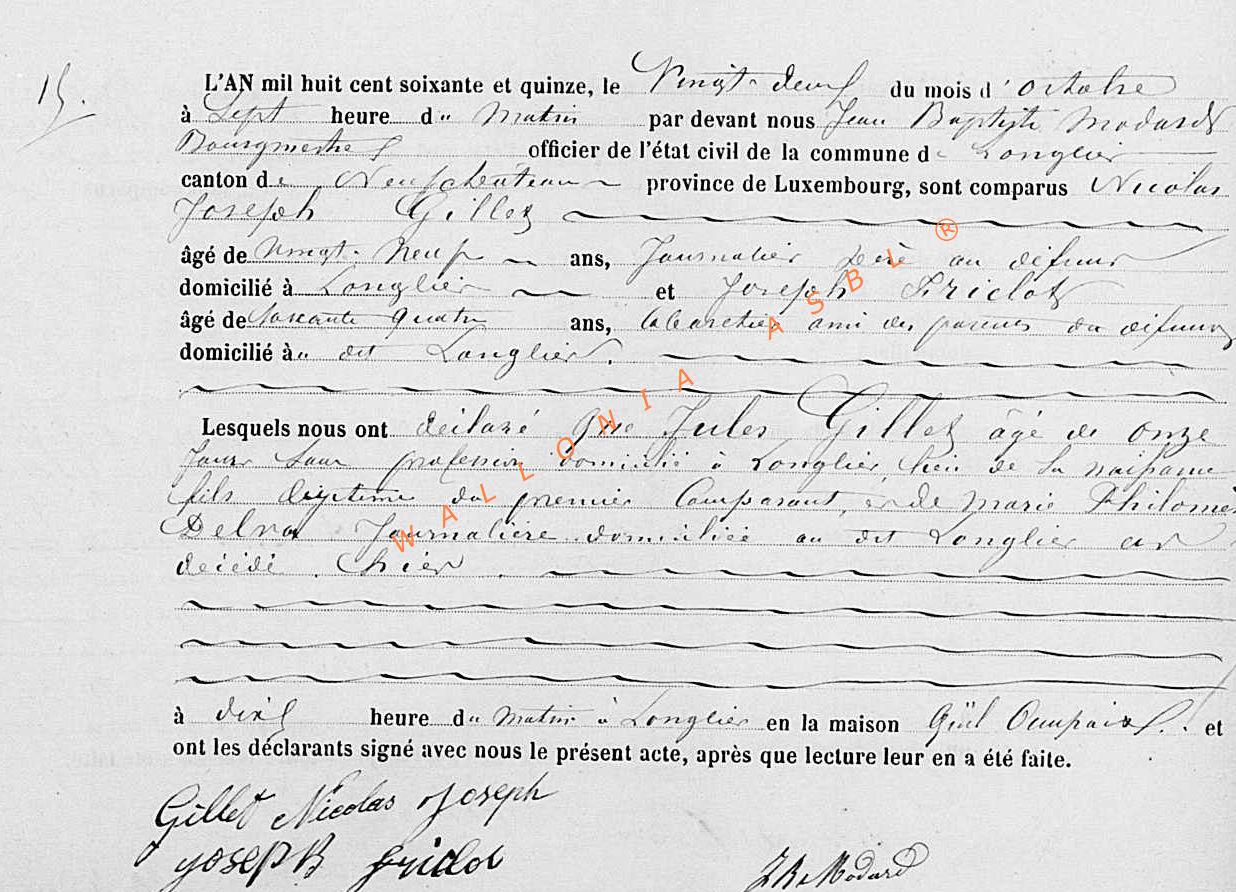 15.
L'AN mil huit cent soixante et quinze, le Vingt-deux du mois d'octobre
à Sept heure du Matin par devant nous Jean Baptiste Modard
Bourgmestre officier de l'état civil de la commune de Longlier
canton de Neufchâteau province de Luxembourg, sont comparus Nicolas
Joseph Gillet
âgé de vingt-neuf ans, Journalier père du défunt
domicilié à Longlier et Joseph
âgé de Soixante quatre ans, Cabaretier ami des parents du défunt
domicilié au dit Longlier.
Lesquels nous ont déclaré que Jules Gillet âgé de onze
jours sans profession domicilié à Longlier, lieu de sa naissance
fils légitime du premier Comparant, et de Marie Philomè
Journalière domiciliée au dit Longlier est
décédé hier
à dix heure du Matin à Longlier en la maison qu'il et
ont les déclarants signé avec nous le présent acte, après que lecture leur en a été faite.
Gillet Nicolas Joseph
JOSEPH
J B Modard
WALLONIA ASBL ®